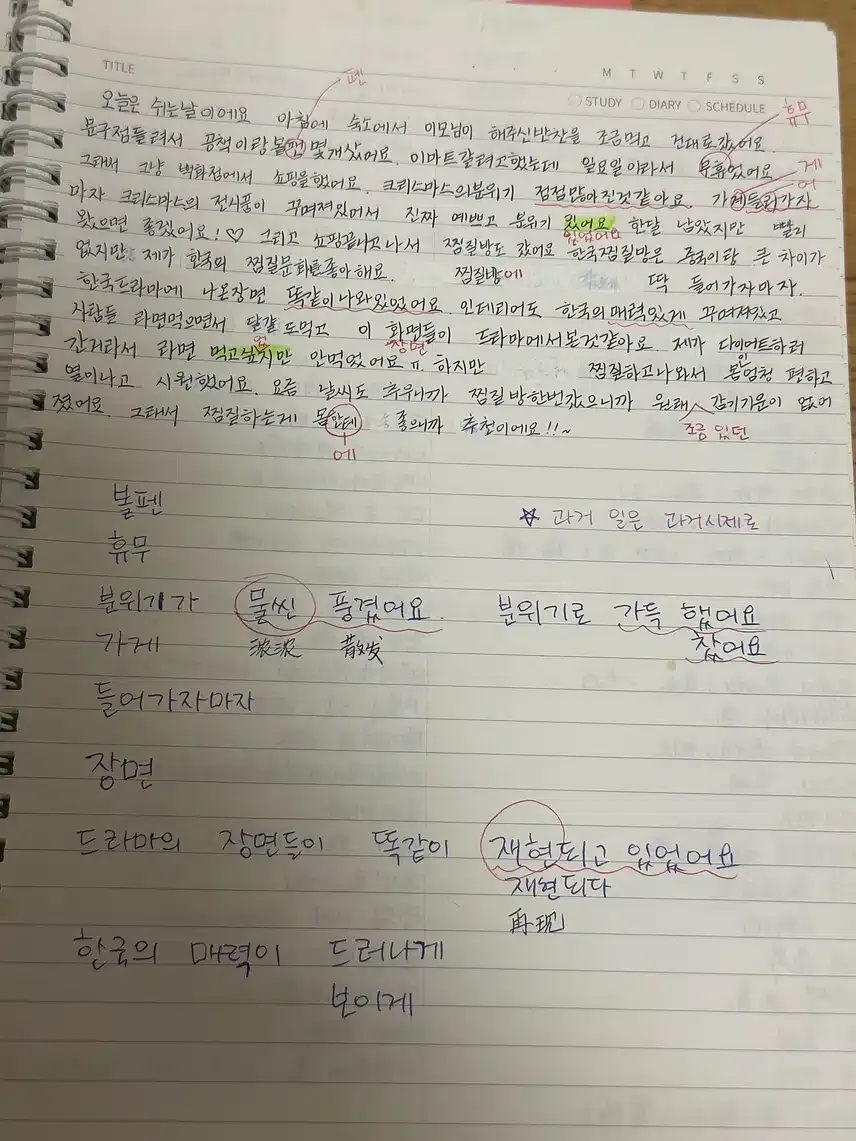 TITLE
M T W T F S S
STUDY DIARY SCHEDULE
펜
휴무
오늘은 쉬는날이에요 아침에 숙소에서 이모님이 해주신반찬을 조금먹고 건대로갔어요.
문구점들려서 공책이랑볼펜몇개샀어요. 이마트갈려고했는데 일요일이라서 무휴었어요
게
그래서 그냥 백화점에서 쇼핑을했어요. 크리스마스의분위기 점점많아진것같아요. 가게들리가자
어
마자 크리스마스의 전시품이 꾸며져있어서 진짜 예쁘고 분위기 있어요. 한달 남았지만 빨리
있었어요
왔으면 좋겠어요!♡ 그리고 쇼핑끝나고나서 찜질방도 갔어요 한국찜질방은 중국이랑 큰 차이가
없지만 제가 한국의 찜질문화를좋아해요. 찜질방에 딱 들어가자마자.
한국드라마에 나온장면 똑같이나와있었어요. 인테리어도 한국의매력있게 꾸며져있고
사람들 라면먹으면서 달걀도먹고 이 화면들이 드라마에서본것같아요. 제가 다이어트하러
장면
간거라서 라면 먹고싶지만 안먹었어요ㅠ. 하지만 찜질하고나와서 몸엄청 편하고
이
열이나고 시원했어요. 요즘 날씨도 추우니까 찜질방한번갔으니까 원래 감기기운이 없어
조금 있던
졌어요. 그래서 찜질하는게 몸한테 좋으니까 추천이에요!!~
에
볼펜
☆ 과거 일은 과거시제로
휴무
분위기가 물씬 풍겼어요. 분위기로 가득 했어요
가게 滚滚 散发 찼어요
들어가자마자
장면
드라마의 장면들이 똑같이 재현되고 있었어요
재현되다
再现
한국의 매력이 드러나게
보이게